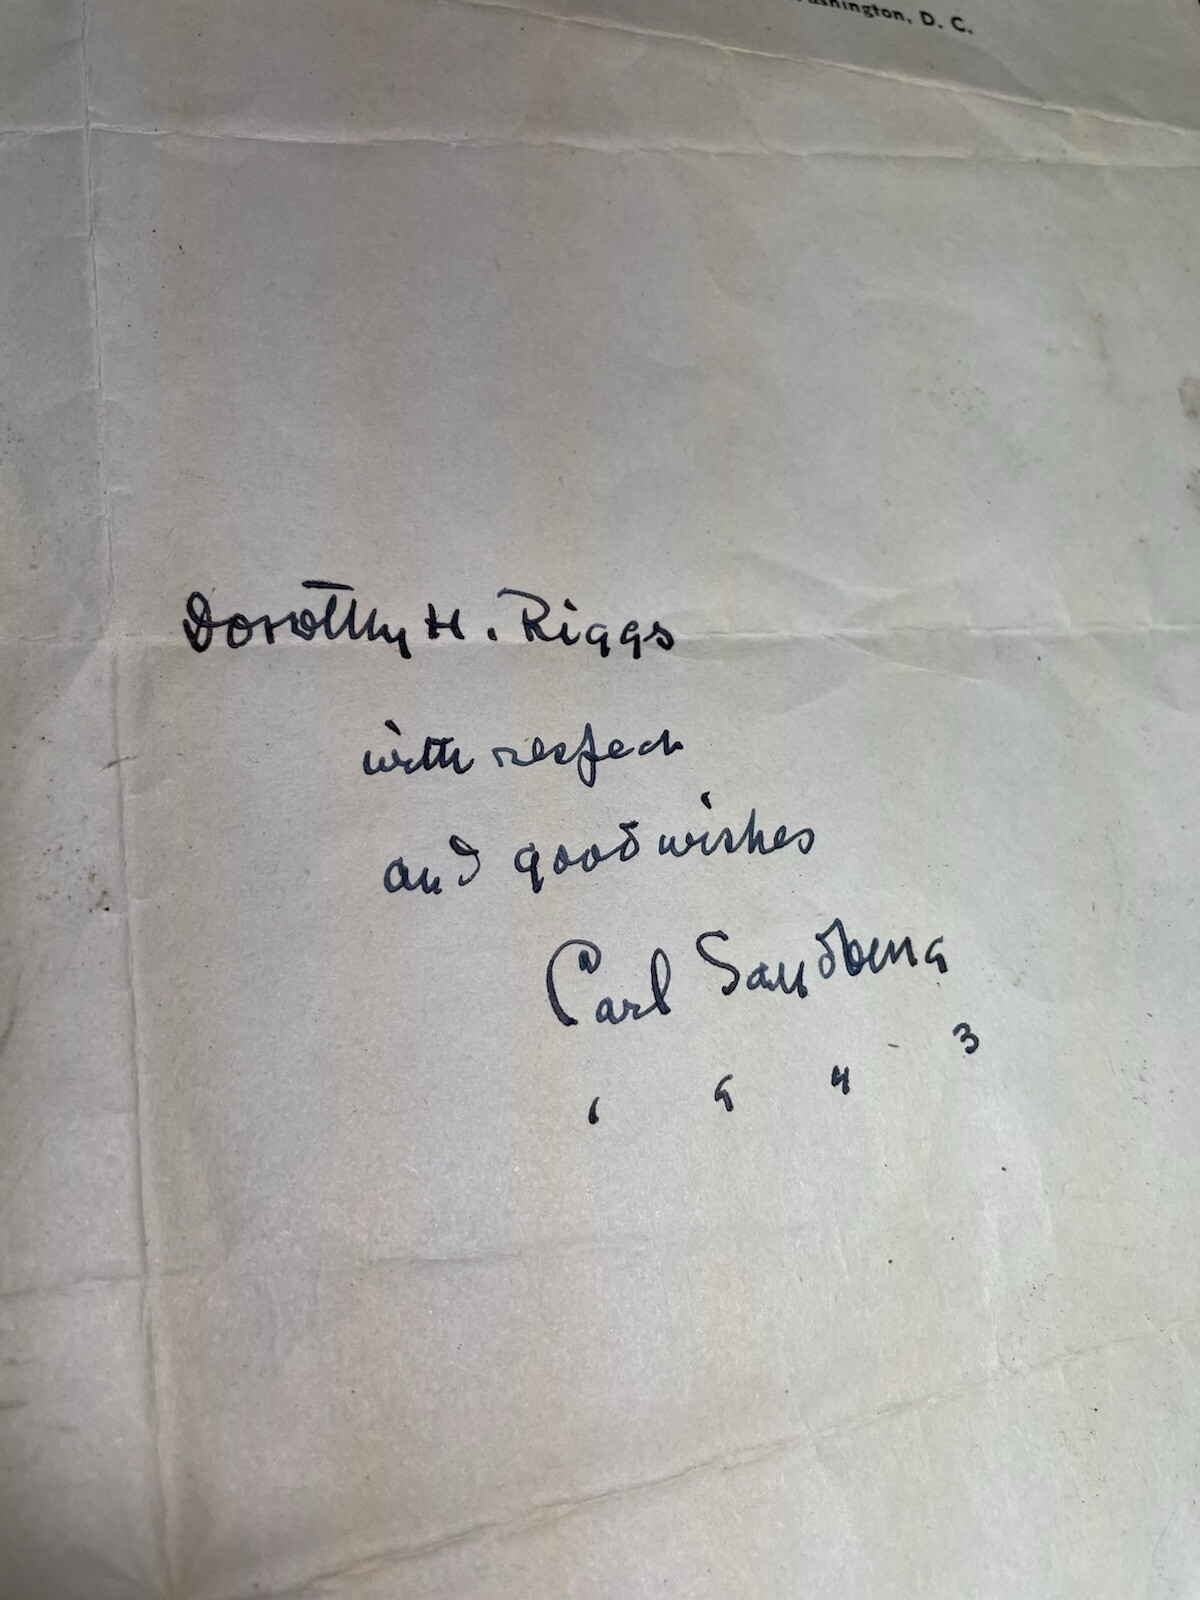 Washington, D. C.
Dorothy H. Riggs
with respect
and good wishes
Carl Sandburg
1943